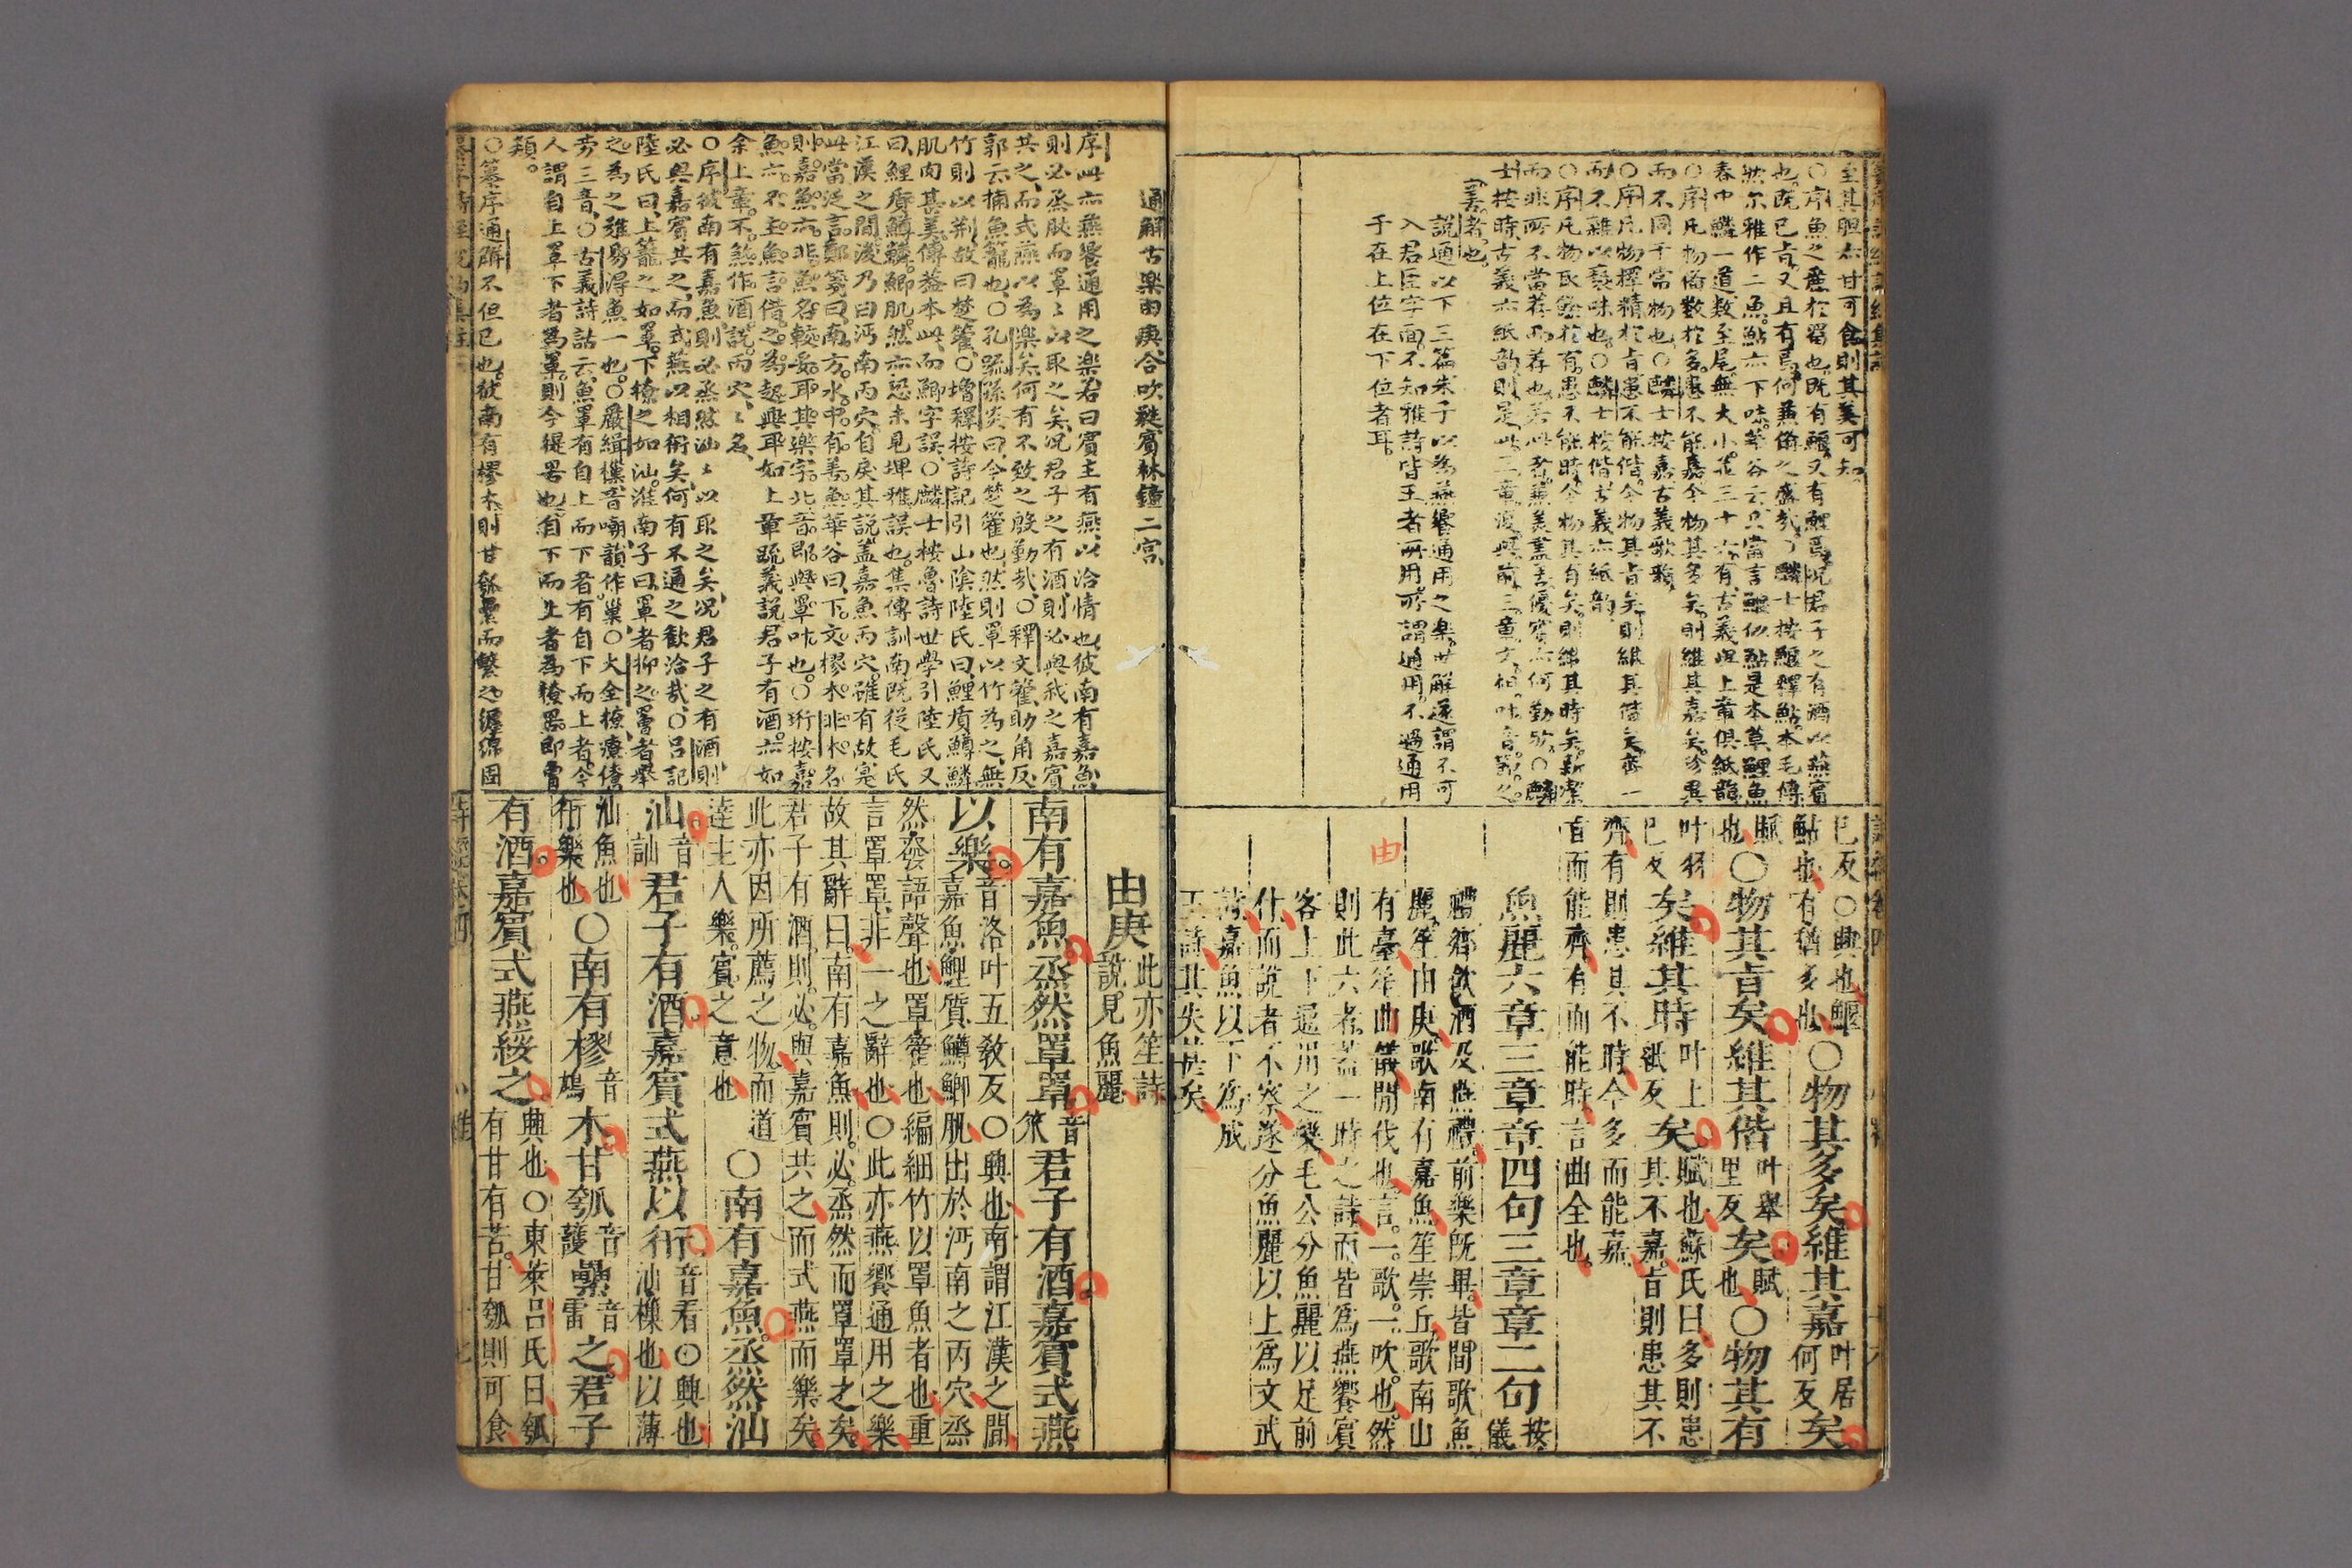 至其胆亦甘可食則其美可知
○序魚之麗於罶也既有鰋又有鯉焉況君子之有酒以燕賓
也既已旨又且有焉何兼備之盛哉○麟士按鰋釋鮎本毛傳
然尔雅作二魚鮎亦下味華谷云只當言鰋似鮎是本草鯉魚
脊中鱗一道数至尾無大小並三十六有古義與上章俱紙韻
○序凡物俻数於多患不能嘉今物其多矣則維其嘉矣珍異
而不同于常物也○麟士按嘉古義歌韻
○序凡物擇精於旨患不能偕今物其旨矣則維其偕矣齊一
而不雜以我味也○麟士按偕古義亦紙韻
○序凡物取餘於有患不能時今物其有矣則維其時矣新潔
而非所不當荐而荐也
士按時古義亦紙韻則是此三章復與前三章文相叶音
(美)者也
說通以下三篇朱子以為燕饗通用之樂世解遂謂不可
入君臣字面不知雅詩皆王者所用所謂通用不過通用
于在上位在下位者耳
已反○興也鰋
鮎也有猶多也○物其多矣維其嘉叶居何反矣
賦也○物其旨矣維其偕叶舉里反矣賦也○物其有
叶羽已反矣維其時叶上紙反矣賦也蘇氏曰多則患其不嘉旨則患其不
齊有則患其不時今多而能嘉
旨而能齊有而能時言曲全也
魚麗六章三章章四句三章章二句按儀
禮鄉飲酒及燕禮前樂既畢皆間歌魚
麗笙由庚歌南有嘉魚笙崇丘歌南山
由
有臺笙由儀間代也言一歌一吹也然
則此六者蓋一時之詩而皆爲燕饗賓
客上下通用之樂毛公分魚麗以足前
什而說者不察遂分魚麗以上爲文武
詩嘉魚以下爲成
王詩其失甚矣
通解古樂由庚合吹蕤賓林鐘二宮
序此亦燕饗通用之樂若曰賓主有燕以洽情也彼南有嘉魚
則必烝然而罩罩以取之矣況君子之有酒則必與我之嘉賓
共之而式燕以為樂矣何有不致之殷勤哉○釋文籗助角反
郭云捕魚籠也○孔疏孫炎曰今楚籗也然則罩以竹為之無
竹則以荊故曰楚籗○増釋按詩記引山陰陸氏曰鯉質鱒鱗
肌肉甚美傳蓋本此而鯽字誤○麟士按魯詩世學引陸氏又
曰鯉質鱒鱗鯽肌然亦恐未見埤雅誤也集傳訓南既從毛氏
江漢之間後乃曰沔南丙穴自戾其說蓋嘉魚丙穴雖有故寔
此當泛言鄭箋曰南方水中有善魚華谷曰下文樛木非木名
則嘉魚亦非魚名較妥耳其樂字北音郎與罩叶也○珩按嘉
魚亦不主魚言借之為起興耳如上章疏義説君子有酒亦如
余上章不煞作酒説丙穴穴名
○序彼南有嘉魚則必烝然汕汕以取之矣況君子之有酒則
必與嘉賓共之而式燕以相衎矣何有不通之歡洽哉○呂記
陸氏曰上籠之如罩下撩之如汕淮南子曰罩者抑之罾者舉
之為之雖易得魚一也○嚴緝樔音嘲韻作巢○大全撩療僚
劳三音○古義詩詁云魚罩有自上而下者有自下而上者今
人謂自上罩下者為罩則今提罟也自下而上者為撩罟即罾
類
○纂序通解不但已也彼南有樛木則甘瓠纍而繁之纏綿固
由庚此亦笙詩說見魚麗
南有嘉魚烝然罩罩音笊君子有酒嘉賓式燕
以樂音洛叶五敎反○興也南謂江漢之間嘉魚鯉質鱒鯽肌出於沔南之丙穴烝
然發語聲也罩篧也編細竹以罩魚者也重
言罩罩非一之辭也○此亦燕饗通用之樂
故其辭曰南有嘉魚則必烝然而罩罩之矣
君子有酒則必與嘉賓共之而式燕而樂矣
此亦因所薦之物而道
達主人樂賓之意也○南有嘉魚烝然汕
汕音訕君子有酒嘉賓式燕以衎音看○興也汕樔也以薄
汕魚也衎樂也○南有樛音鳩木甘瓠音護纍音雷之君子
有酒嘉賓式燕綏之興也○東萊呂氏曰瓠有甘有苦甘瓠則可食